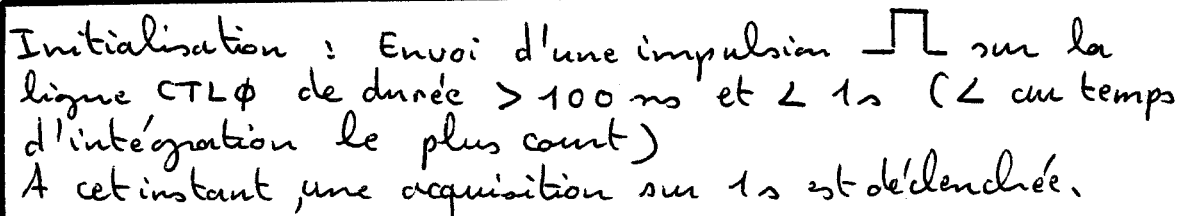 Initialisation : Envoi d'une impulsion sur la
ligne CTLØ de durée > 100 ns et < 1s (< au temps
d'intégration le plus court)
A cet instant, une acquisition sur 1s est déclenchée.